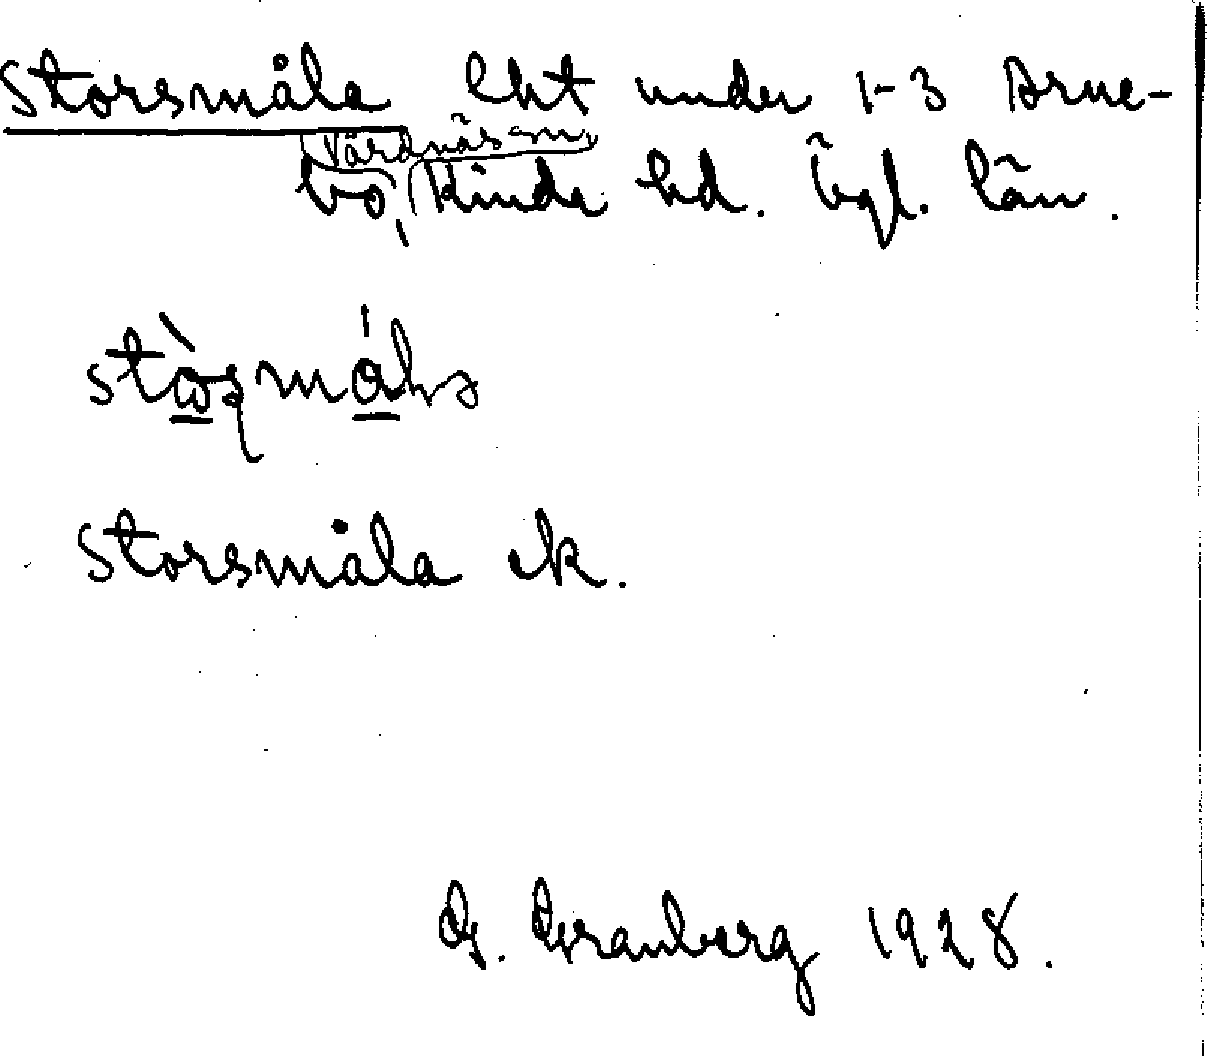 Storsmåla lht under 1-3 Arne-
Vårdnäs sn,
bo, Kinda hd. Ögl. län.
Storsmåla ek.
G. Granberg 1928.